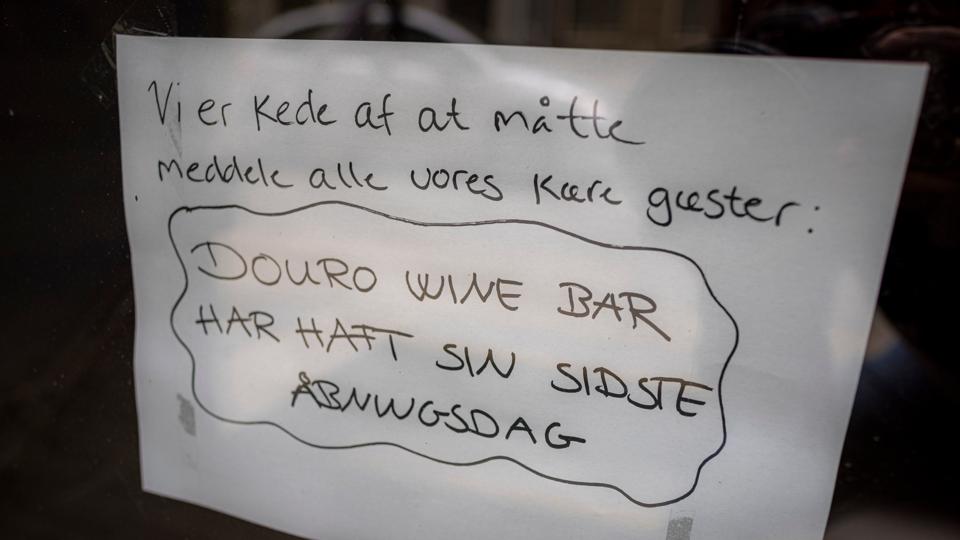 Vi er kede af at måtte
meddele alle vores kære gæster:
DOURO WINE BAR
HAR HAFT SIN SIDSTE
ÅBNINGSDAG